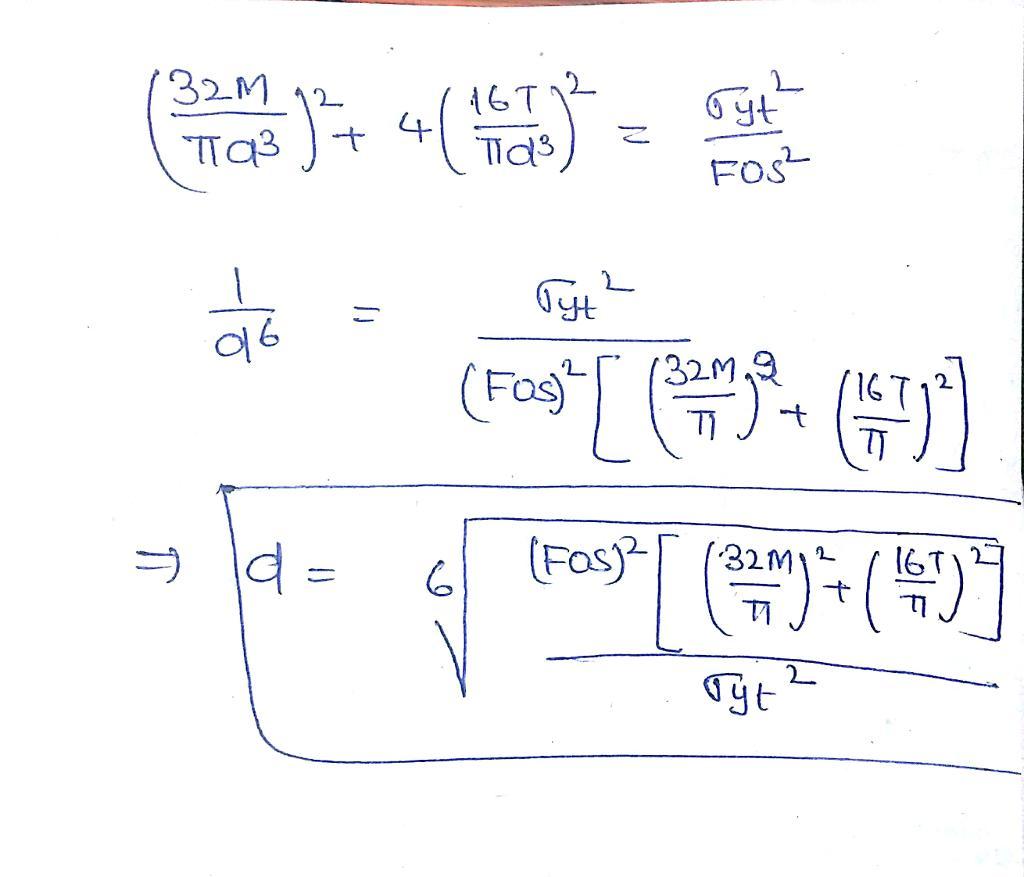 (32M/πd³)² + 4(16T/πd³)² = σyt²/FOS²
1/d⁶ = σyt²/((FOS)²[(32M/π)² + (16T/π)²])
⇒ d = ⁶√((FOS)²[(32M/π)² + (16T/π)²]/σyt²)